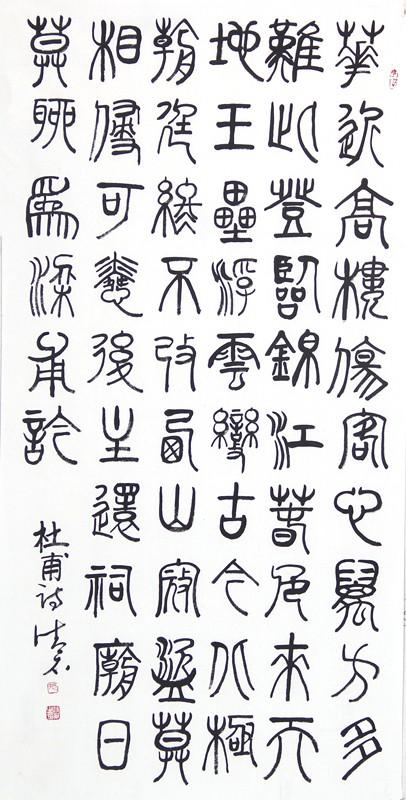 華近高樓傷客心萬方多
難此登臨錦江春色來天
地玉壘浮雲變古今北極
朝廷終不改西山寇盜莫
相侵可憐後主還祠廟日
莫聊爲梁甫訡
杜甫诗